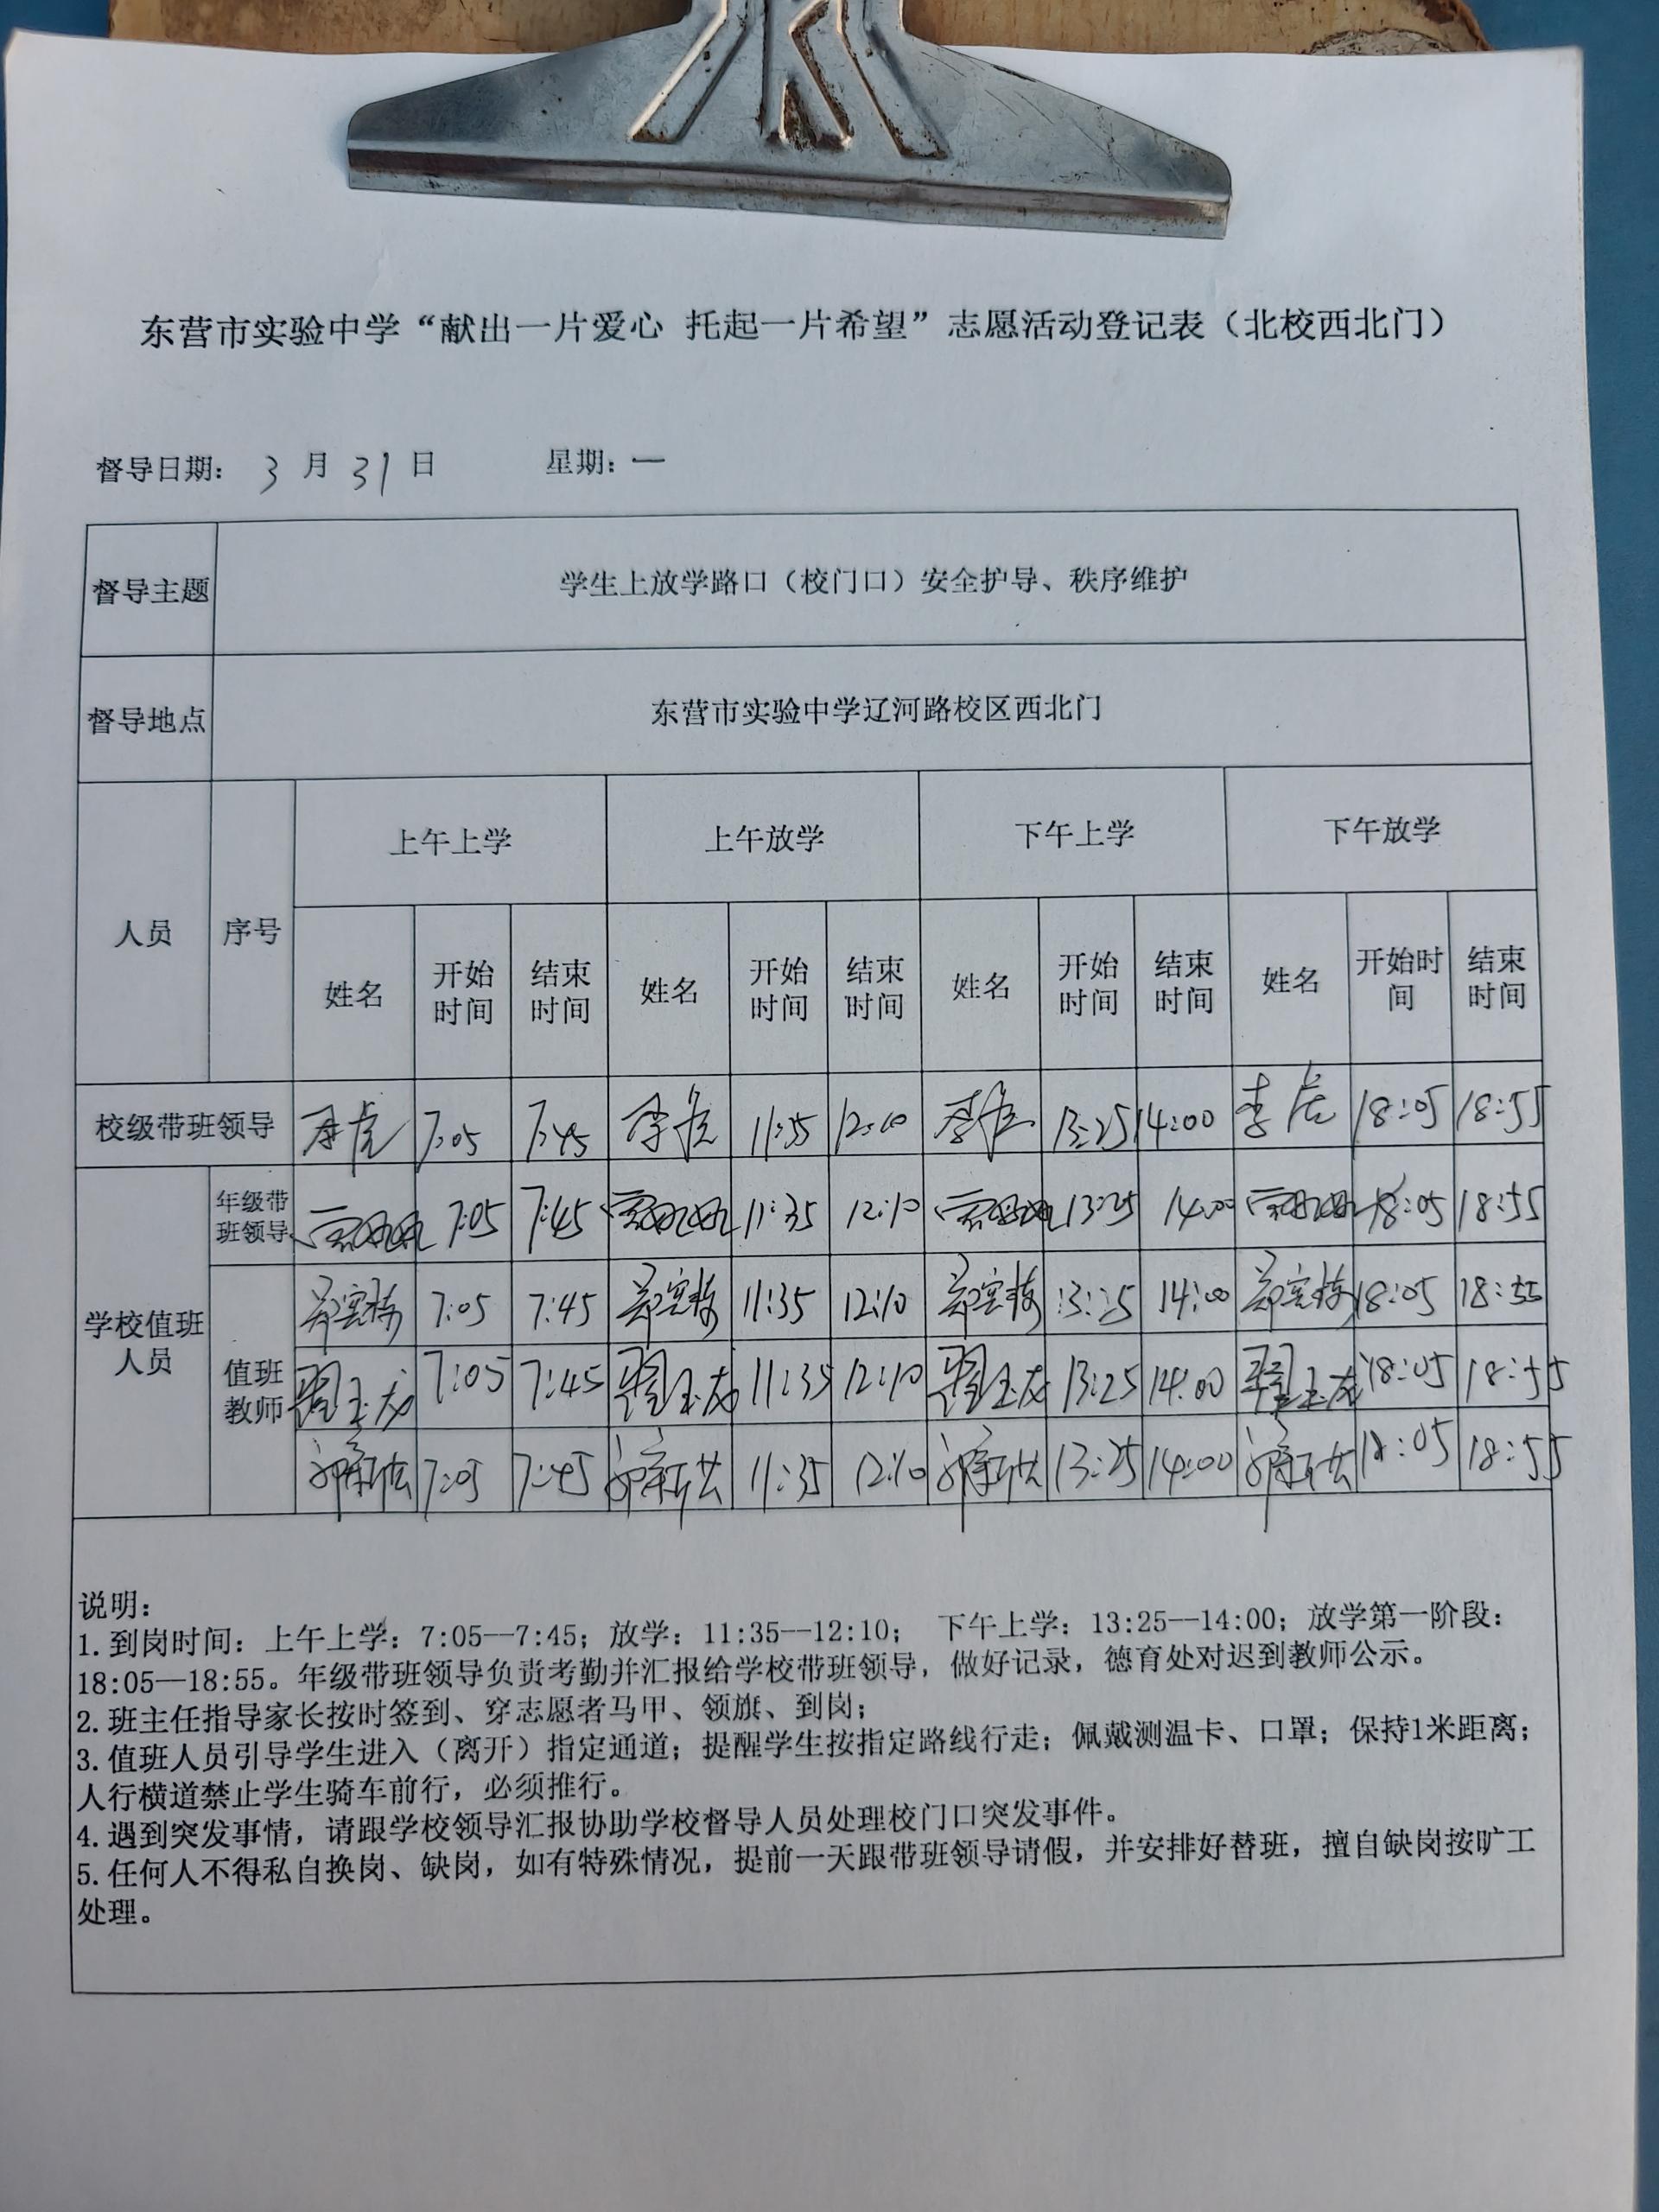 东营市实验中学“献出一片爱心 托起一片希望”志愿活动登记表（北校西北门）
督导日期： 3 月 31 日 星期：一
督导主题 学生上放学路口（校门口）安全护导、秩序维护
督导地点 东营市实验中学辽河路校区西北门
人员 序号 上午上学 上午放学 下午上学 下午放学
姓名 开始时间 结束时间 姓名 开始时间 结束时间 姓名 开始时间 结束时间 姓名 开始时间 结束时间
校级带班领导 7:05 7:45 11:35 12:10 13:25 14:00 李虎 18:05 18:55
学校值班人员
年级带班领导 7:05 7:45 11:35 12:10 13:25 14:00 18:05 18:55
值班教师
7:05 7:45 11:35 12:10 13:25 14:00 18:05 18:55
翟玉龙 7:05 7:45 翟玉龙 11:35 12:10 翟玉龙 13:25 14:00 翟玉龙 18:05 18:55
7:05 7:45 11:35 12:10 13:25 14:00 18:05 18:55
说明：
1.到岗时间：上午上学：7:05—7:45；放学：11:35—12:10； 下午上学：13:25—14:00；放学第一阶段：
18:05—18:55。年级带班领导负责考勤并汇报给学校带班领导，做好记录，德育处对迟到教师公示。
2.班主任指导家长按时签到、穿志愿者马甲、领旗、到岗；
3.值班人员引导学生进入（离开）指定通道；提醒学生按指定路线行走；佩戴测温卡、口罩；保持1米距离；
人行横道禁止学生骑车前行，必须推行。
4.遇到突发事情，请跟学校领导汇报协助学校督导人员处理校门口突发事件。
5.任何人不得私自换岗、缺岗，如有特殊情况，提前一天跟带班领导请假，并安排好替班，擅自缺岗按旷工
处理。